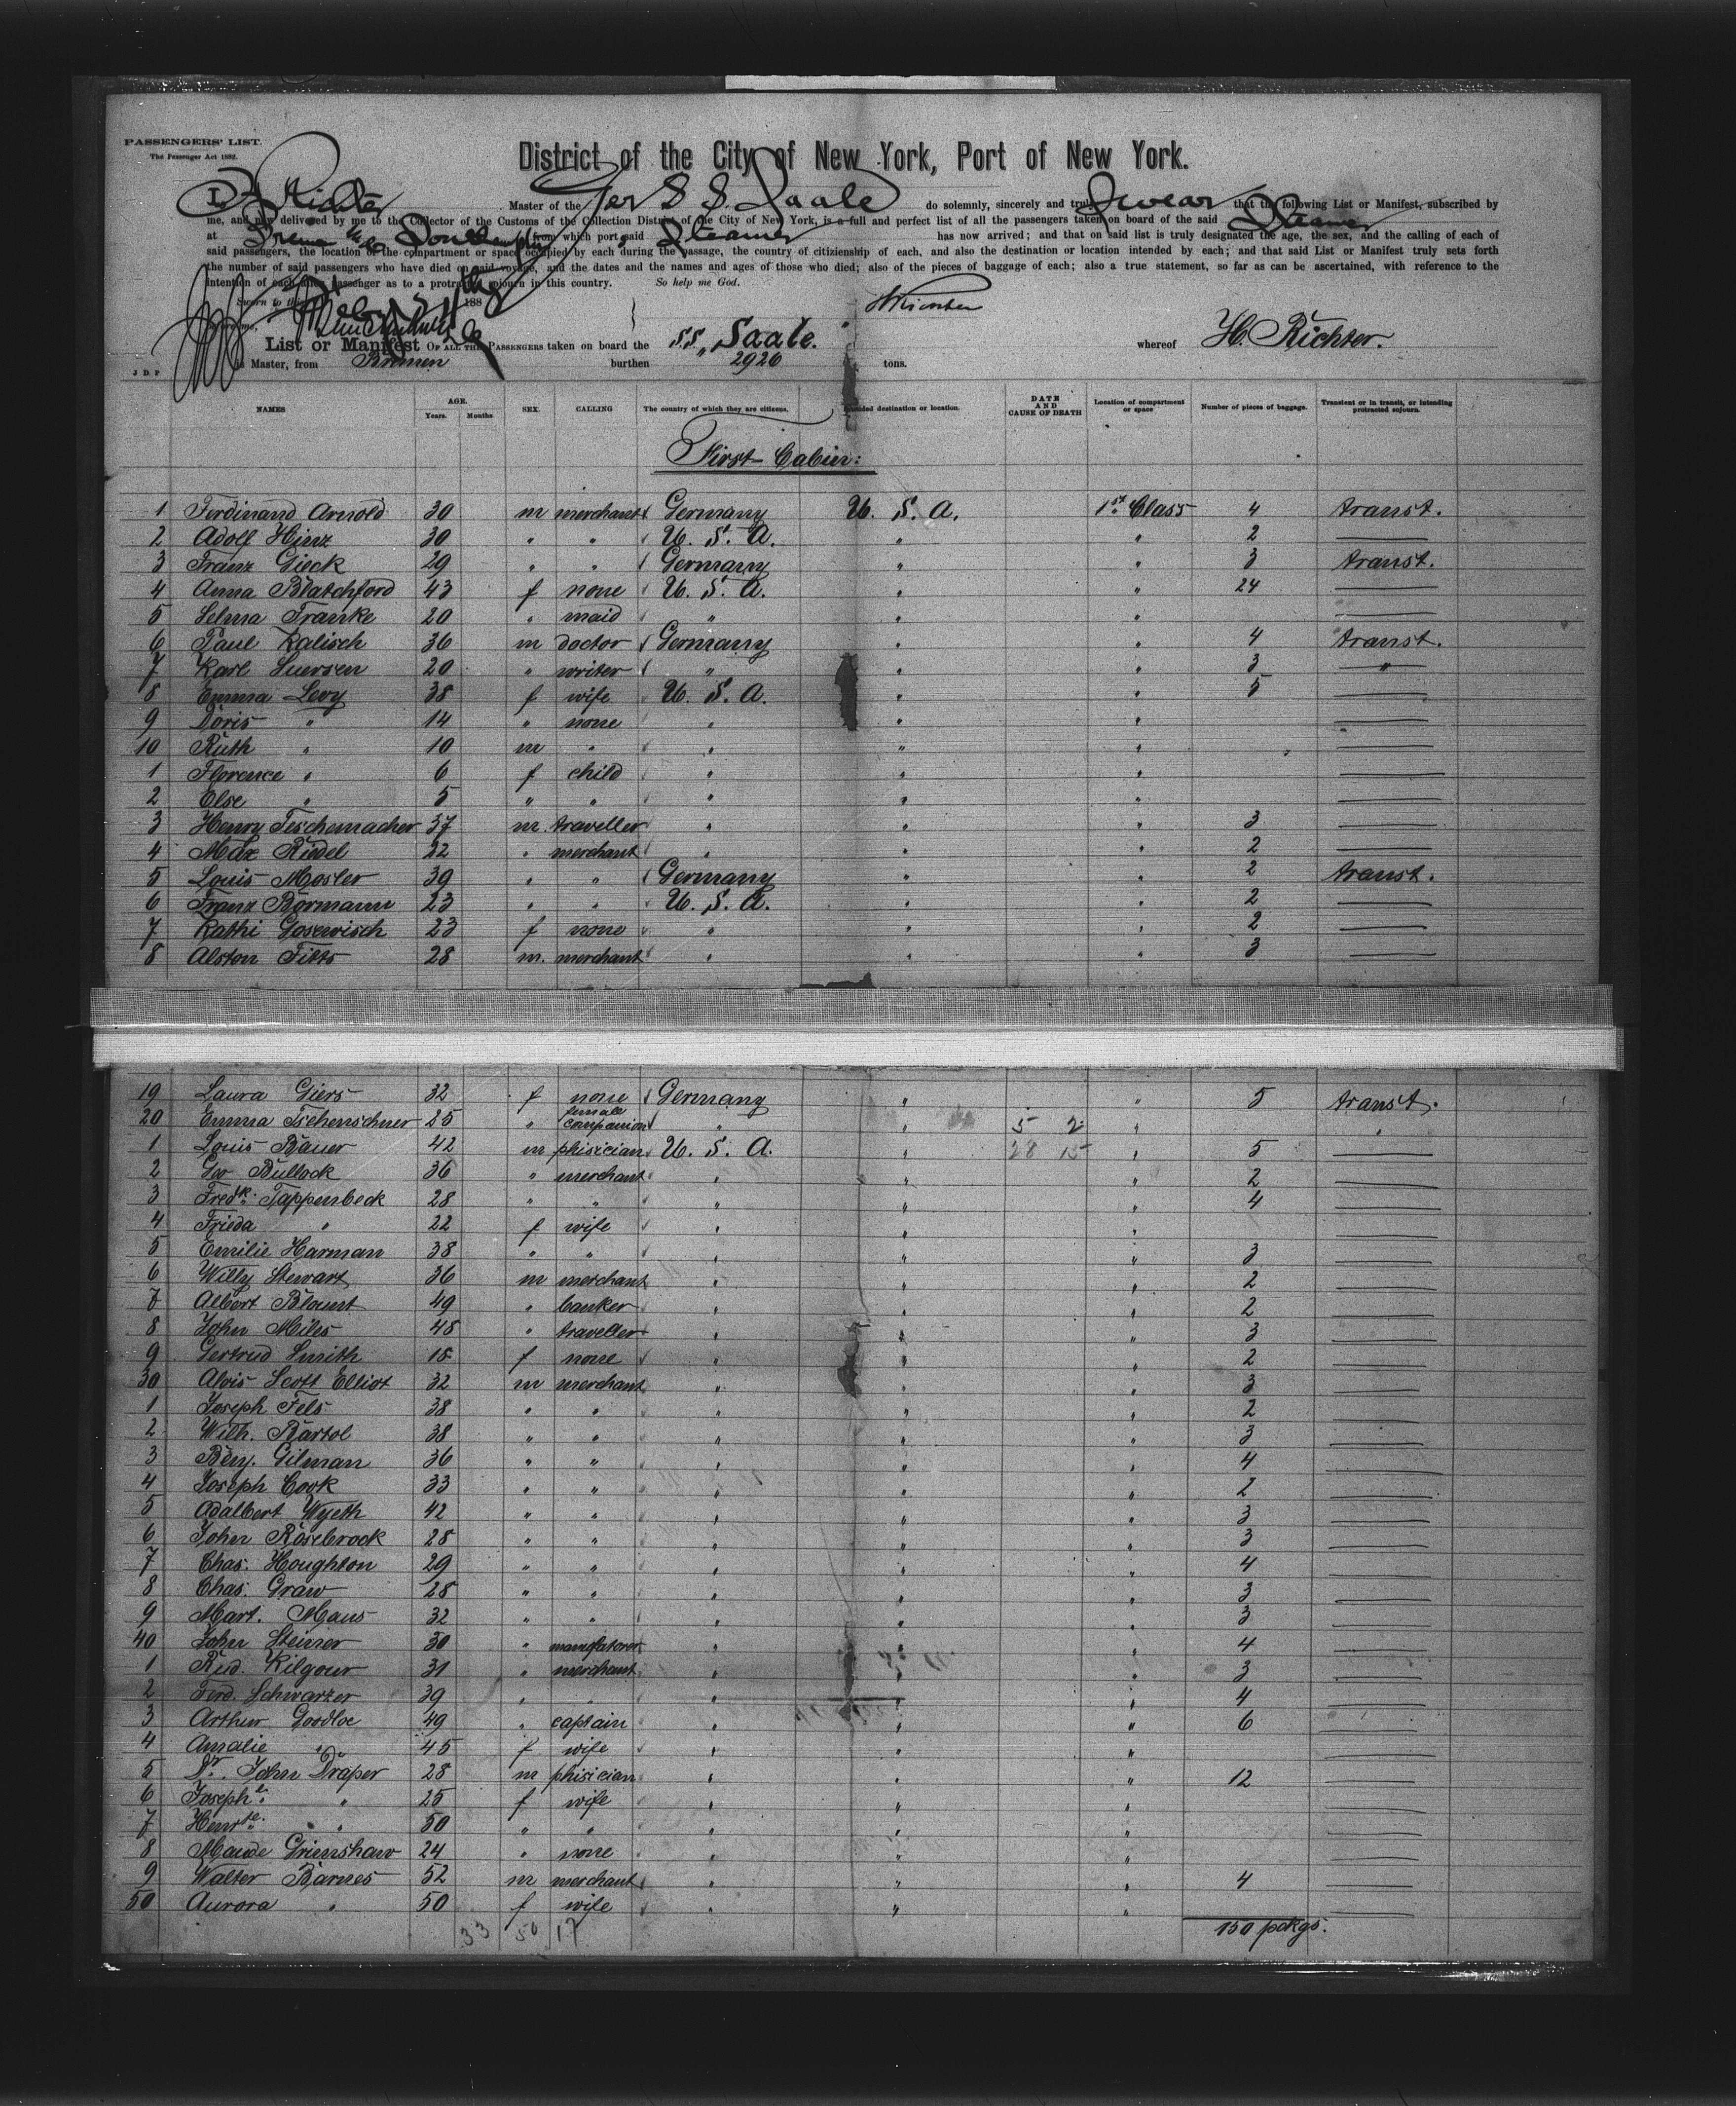 PASSENGERS' LIST.
The Passenger Act 1882.
District of the City of New York, Port of New York.
I, H. Richter Master of the Ger S. S. Saale do solemnly, sincerely and truly Swear that the following List or Manifest, subscribed by
me, and now delivered by me to the Collector of the Customs of the Collection District of the City of New York, is a full and perfect list of all the passengers taken on board of the said Steamer
at Bremen Southampton from which port said Steamer has now arrived; and that on said list is truly designated the age, the sex, and the calling of each of
said passengers, the location of the compartment or space occupied by each during the passage, the country of citizienship of each, and also the destination or location intended by each; and that said List or Manifest truly sets forth
the number of said passengers who have died on said voyage, and the dates and the names and ages of those who died; also of the pieces of baggage of each; also a true statement, so far as can be ascertained, with reference to the
intention of each passenger as to a protracted sojourn in this country. So help me God.
Sworn to this 188
H Richter
List or Manifest OF ALL THE PASSENGERS taken on board the S.S. „Saale. whereof H. Richter.
J D P is Master, from Bremen burthen 2926 tons.
NAMES AGE. Years. Months SEX. CALLING The country of which they are citizens. Intended destination or location. DATE AND CAUSE OF DEATH Location of compartment or space Number of pieces of baggage. Transient or in transit, or intending protracted sojourn.
First Cabin:
1 Ferdinand Arnold 30 m merchant Germany U. S. A. 1st Class 4 transt.
2 Adolf Hinz 30 " " U. S. A. " " 2 —
3 Franz Gieck 29 " " Germany " " 3 transt.
4 Anna Blatchford 43 f none U. S. A. " " 24 —
5 Selma Franke 20 " maid " " " —
6 Paul Kalisch 36 m doctor Germany " " 4 transt.
7 Karl Luersen 20 " writer " " " 3 "
8 Emma Levy 38 f wife U. S. A. " " 5 —
9 Doris " 14 " none " " " —
10 Ruth " 10 m " " " " —
1 Florence " 6 f child " " " —
2 Else " 5 " " " " " —
3 Henry Teschemacher 37 m. traveller " " " 3 —
4 Max Riedel 22 " merchant " " " 2 —
5 Louis Mosler 39 " " Germany " " 2 transt.
6 Franz Bormann 23 " " U. S. A. " " 2 —
7 Kathi Gosewisch 23 f none " " " 2 —
8 Alston Fitts 28 m. merchant " " " 3 —
19 Laura Giers 32 f none Germany " " 5 transt.
20 Emma Tschenschner 25 " female companion " " 5 2 " "
1 Louis Bauer 42 m phisician U. S. A. " 28 15 " 5 —
2 Geo Bullock 36 " merchant " " " 2 —
3 Fredk. Tappenbeck 28 " " " " " 4 —
4 Frieda " 22 f wife " " " —
5 Emilie Harman 38 " " " " " 3 —
6 Willy Stewart 36 m merchant " " " 2 —
7 Albert Blount 49 " banker " " " 2 —
8 John Miles 48 " traveller " " " 3 —
9 Gertrud Smith 18 f none " " " 2 —
30 Alvis Scott Elliot 32 m merchant " " " 3 —
1 Joseph Fels 38 " " " " " 2 —
2 Wilh. Bartol 38 " " " " " 3 —
3 Benj. Gilman 36 " " " " " 4 —
4 Joseph Cook 33 " " " " " 2 —
5 Adalbert Wyeth 42 " " " " " 3 —
6 John Rosebrock 28 " " " " " 3 —
7 Chas. Houghton 29 " " " " " 4 —
8 Chas. Graw 28 " " " " " 3 —
9 Mart. Maus 32 " " " " " 3 —
40 John Steiner 30 " manufatorer " " " 4 —
1 Rud. Kilgour 31 " merchant " " " 3 —
2 Ferd. Schwarzer 39 " " " " " 4 —
3 Arthur Goodloe 49 " captain " " " 6 —
4 Amalie " 45 f wife " " " —
5 Dr. John Draper 28 m phisician " " " 12 —
6 Josephe. " 25 f wife " " " —
7 Henrte. " 50 " " " " " —
8 Maude Grimshaw 24 " none " " " —
9 Walter Barnes 52 m merchant " " " 4 —
50 Aurora " 50 f wife " " " —
33 50 17 150 pckgs.